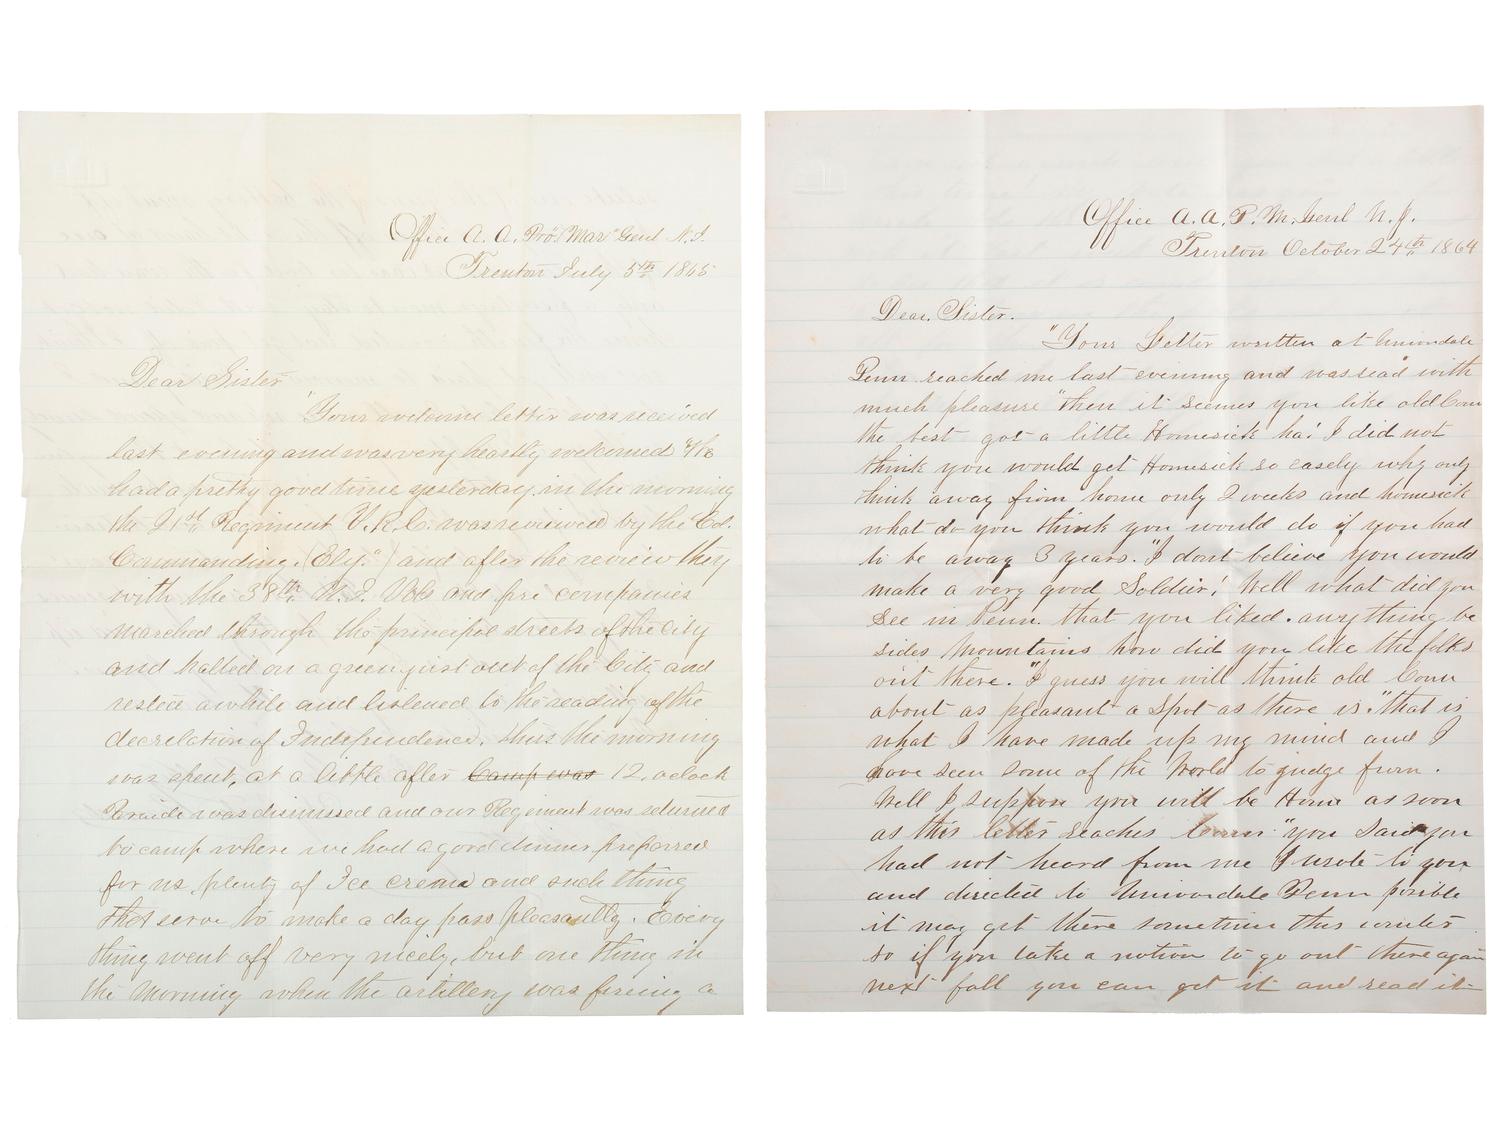 Office A. A. Pro. Mar Genl N. J.
Trenton July 5th 1865
Dear Sister
"Your welcome letter was received
last evening and was very heartly welcomed We
had a pretty good time yesterday, in the morning
the 21st Regiment V.R.C. was reviewed by the Col.
Commanding, (Ely.) and after the review they
with the 38th N. J. Vols and fire companies
marched through the principel streets of the city
and halted on a green just out of the City and
rested a while and listened to the reading of the
decreletion of Independence. thus the morning
was spent, at a little after Camp was 12. oclock
Peraide was dismissed and our Regiment was returned
to camp where we had a good dinner preparred
for us plenty of Ice cream and such thing
that serve to make a day pass pleasantly. Every
thing went off very nicely, but one thing in
the morning when the artillery was fireing a
Office A. A. P. M. Genl N. J.
Trenton October 24th 1864
Dear Sister.
"Your Letter written at Uniondale
Penn reached me last evening and was read with
much pleasure "then it seems you like old Conn
the best got a little Homesick ha! I did not
think you would get Homesick so easely why only
think away from home only 2 weeks and homesick
what do you think you would do if you had
to be away 3 years. "I dont believe you would
make a very good Soldier! Well what did you
See in Penn. that you liked. anything be
sides Mountains how did you like the folks
out there. "I guess you will think old Conn
about as pleasant a spot as there is." that is
what I have made up my mind and I
have seen some of the World to judge from.
Well I suppose you will be Home as soon
as this letter reaches Conn "you said you
had not heard from me I wrote to you
and directed to Uniondale Penn posible
it may get there sometime this winter
so if you take a notion to go out there again
next fall you can get it and read it